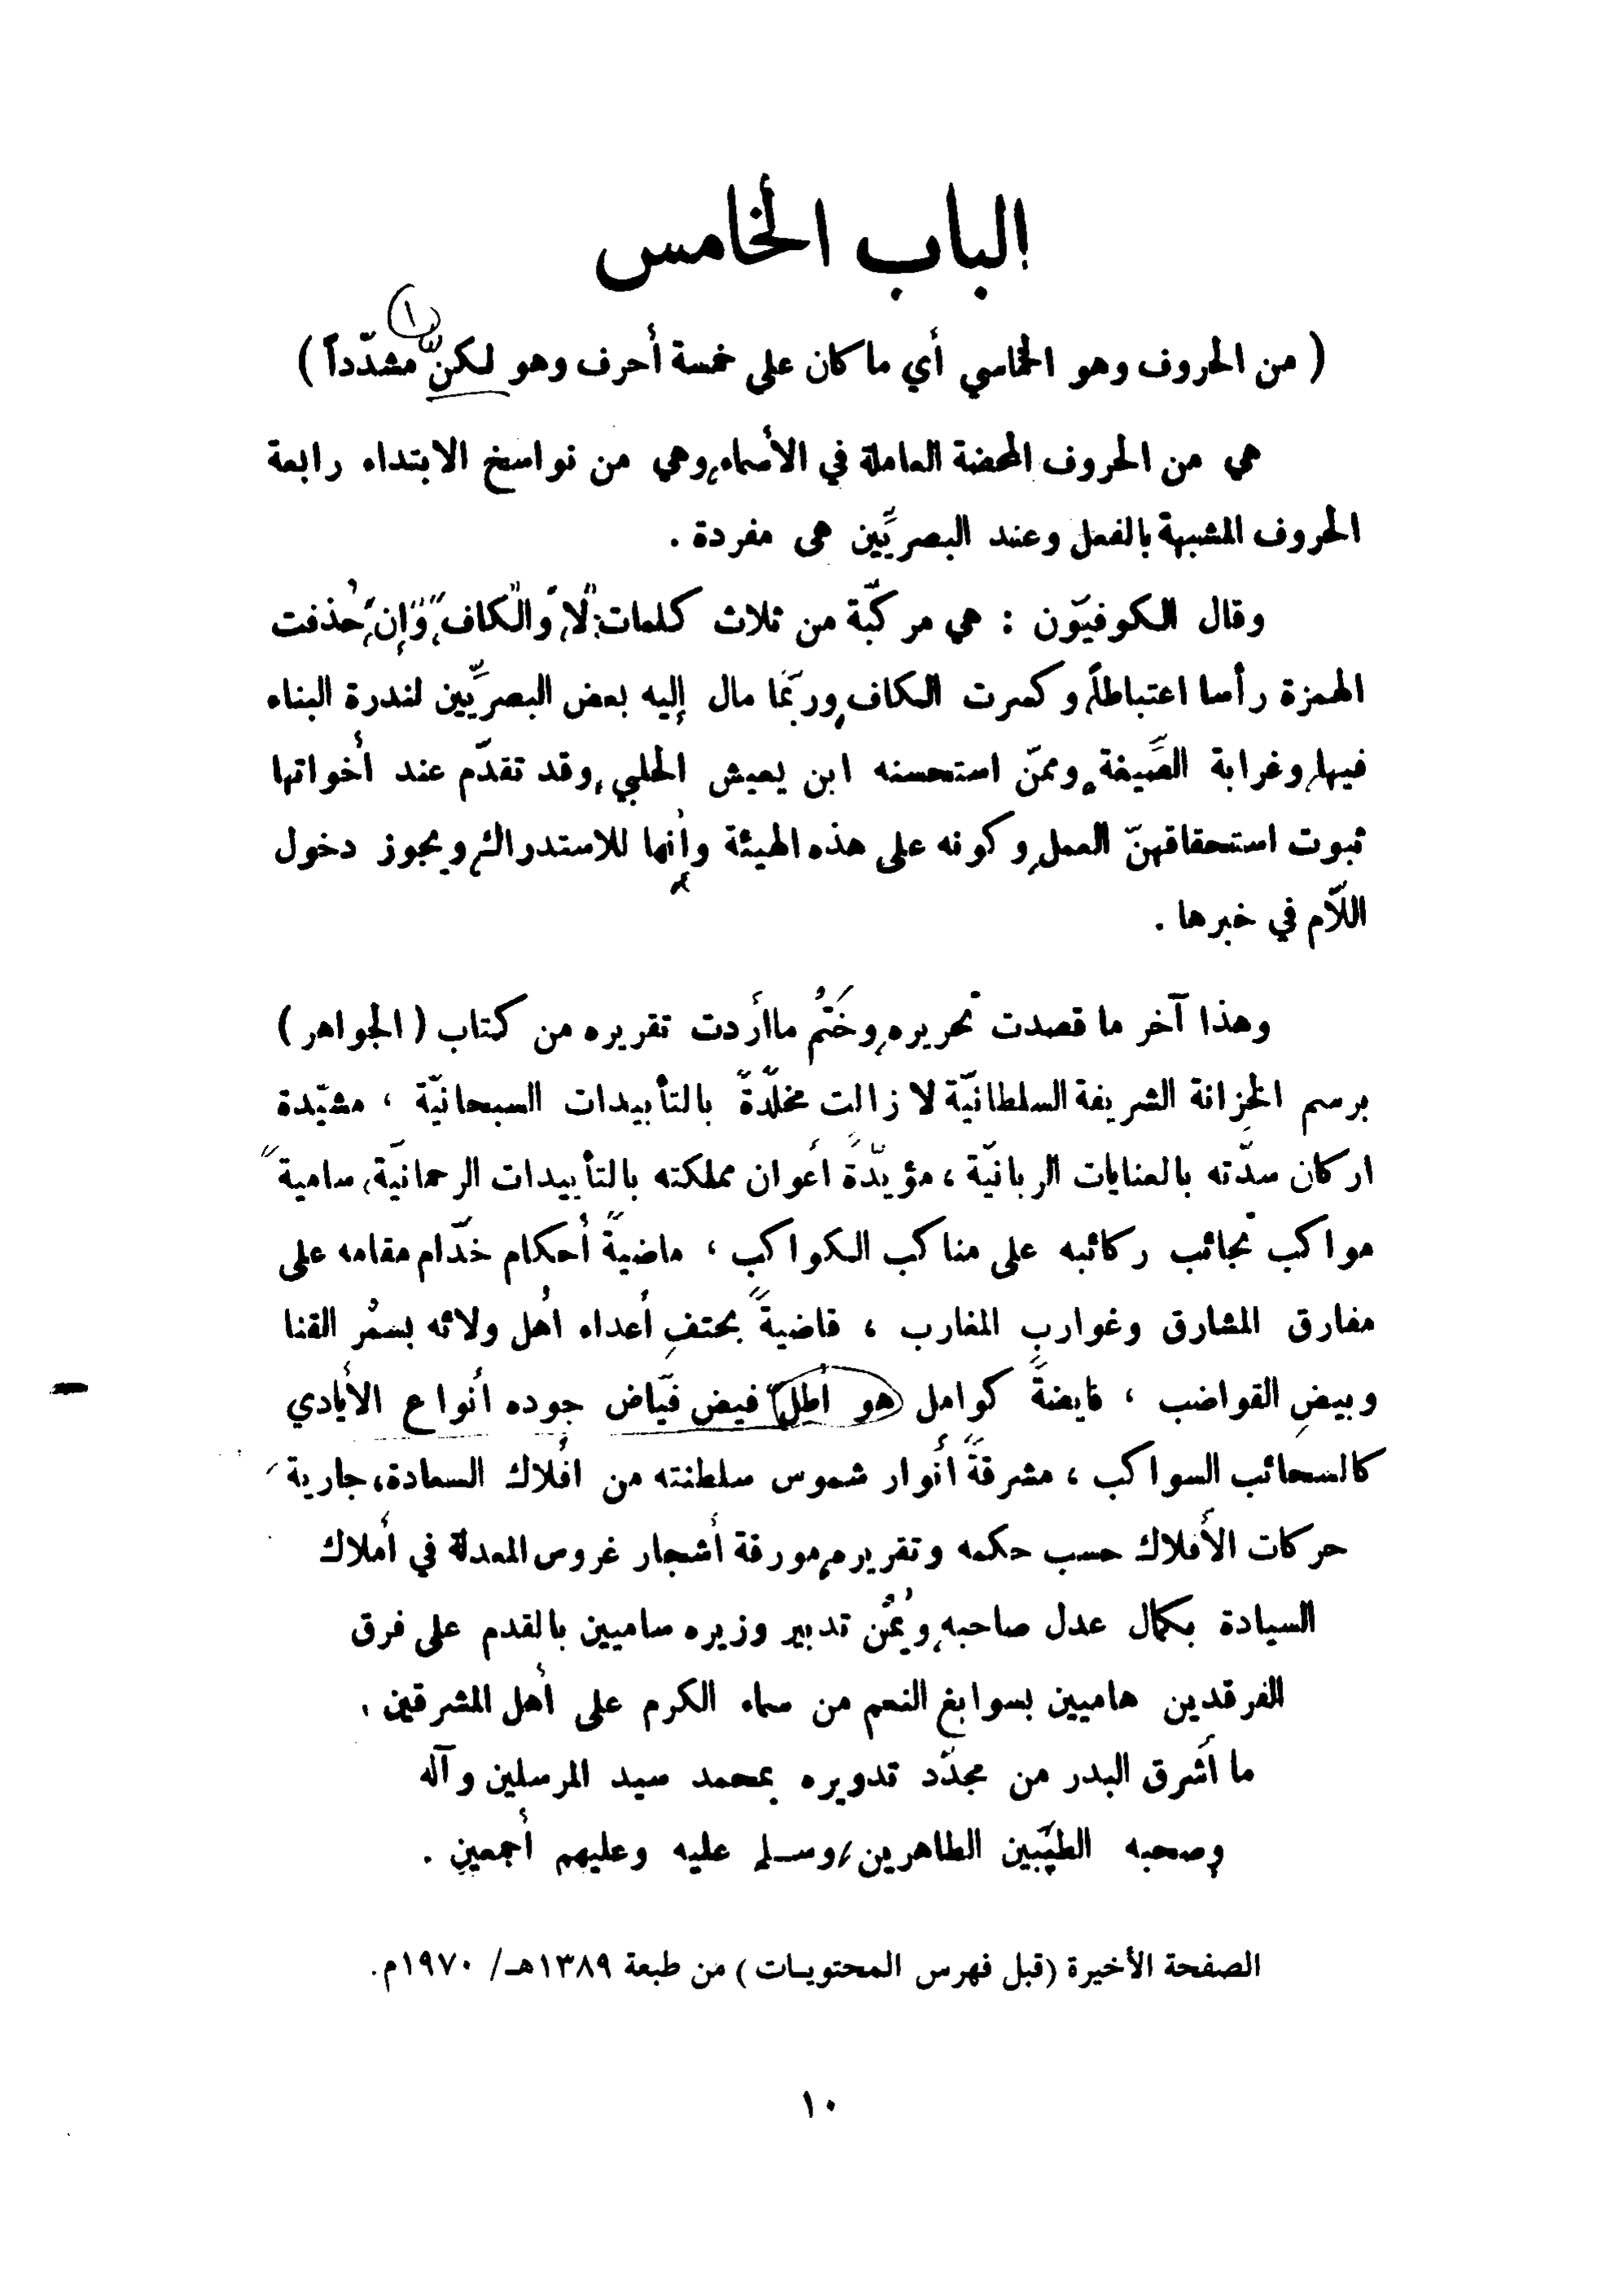 الباب الخامس
١
( من الحروف وهو الخماسي أي ما كان على خمسة أحرف وهو لكنّ مشدّداً )
هي من الحروف المحضة العاملة في الأسماء، وهي من نواسخ الابتداء رابعة
الحروف المشبهة بالفعل وعند البصريِّين هى مفردة .
وقال الكوفيّون : هي مركّبة من ثلاث كلمات: "لا"، و"الكاف"، و"إن"، حُذفت
الهمزة رأسا اعتباطاً، وكسرت الكاف، وربّما مال إليه بعض البصريِّين لندرة البناء
فيها، وغرابة الصِّيغة، وممّن استحسنه ابن يعيش الحلبي، وقد تقدّم عند أخواتها
ثبوت استحقاقهنّ العمل، وكونه على هذه الهيئة وأنها للاستدراك، ويجوز دخول
اللاّم في خبرها .
وهذا آخر ما قصدت تحريره، وخَتْمُ ما أردت تقريره من كتاب ( الجواهر )
برسم الخزانة الشريفة السلطانيّة لا زالت مخلّدةً بالتأبيدات السبحانيّة ، مشيّدة
اركان سدّته بالعنايات الربانيّة ، مؤيّدةً أعوان مملكته بالتأييدات الرحمانيّة، ساميةً
مواكب نجائب ركائبه على مناكب الكواكب ، ماضيةً أحكام خدّام مقامه على
مفارق المشارق وغوارب المغارب ، قاضيةً بحتفِ أعداء أهل ولائه بسمْر القنا
وبيضِ القواضب ، فايضةً كوامل هو أطل فيض فيّاض جوده أنواع الأيادي
كالسحائب السواكب ، مشرقةً أنوار شموس سلطنته من افلاك السعادة، جارية
حركات الأفلاك حسب حكمه وتقريره، مورقة أشجار غروس المعدلة في أملاك
السيادة بكمال عدل صاحبه، ويُمْن تدبير وزيره ساميين بالقدم على فرق
الفرقدين هاميين بسوابغ النعم من سماء الكرم على أهل المشرقين ،
ما أشرق البدر من مجدّد تدويره بمحمد سيد المرسلين وآله
وصحبه الطيّبين الطاهرين، وسلم عليه وعليهم أجمعين .
الصفحة الأخيرة (قبل فهرس المحتويات) من طبعة ١٣٨٩هـ/ ١٩٧٠م.
١٠